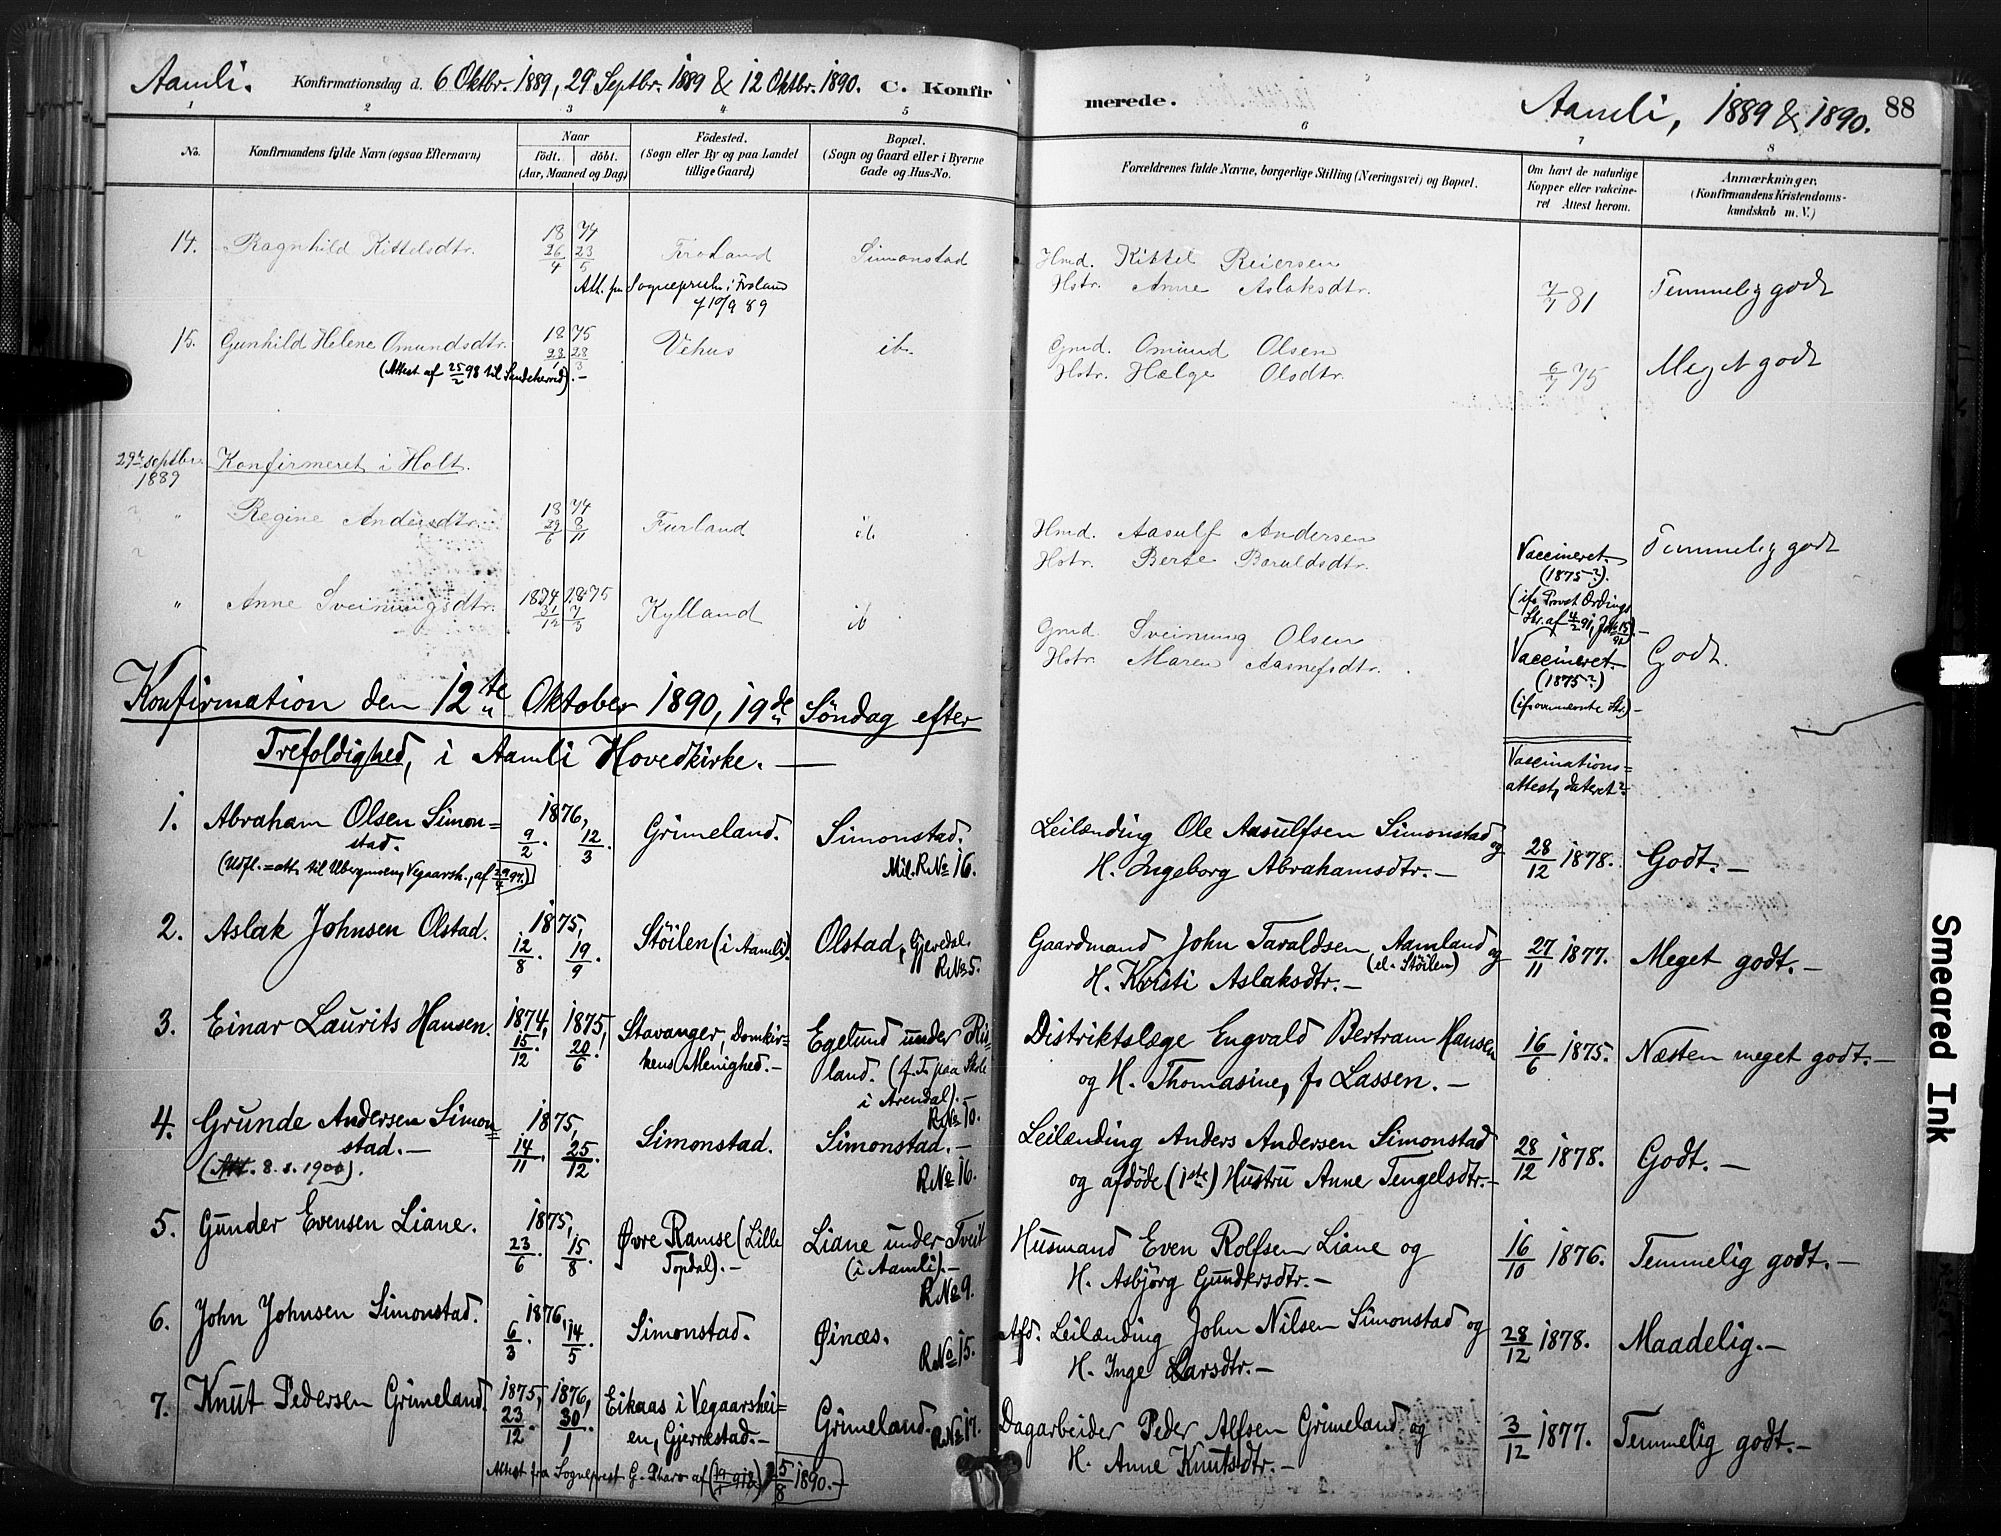 Aamli. Konfirmationsdag d. 6 Oktbr. 1889, 29 Septbr. 1889 & 12 Oktbr. 1890. C. Konfir
merede. Aamli, 1889 & 1890. 88
1 2 3 4 5 6 7 8
No. Konfirmandens fylde Navn (ogsaa Efternavn) Naar født. døbt. (Aar, Maaned og Dag) Födested. (Sogn eller By og paa Landet tillige Gaard) Bopæl. (Sogn og Gaard eller i Byerne Gade og Hus-No.
Forældrenes fulde Navne, borgerlige Stilling (Næringsvei) og Bopæl. Om havt de naturlige Kopper eller vakcineret Attest herom. Anmærkninger. (Konfirmandens Kristendomskundskab m. V.)
14. Ragnhild Kittelsdtr. 18 74 26/4 23/5 Froland Simonstad Hmd. Kittel Reiersen
Hstr. Anne Aslaksdtr. 7/7 81 Temmelig godt
Att. fra Sognepresten i Froland
f 10/9 89
15. Gunhild Helene Omundsdtr. 18 75 23/1 28/3 Vehus ib. Gmd. Omund Olsen
Hstr. Hælge Olsdtr. 6/7 75 Meget godt
(Attest af 25/2 98 til Sandeherred).-
29de septbr. 1889 Konfirmeret i Holt.
" Regine Andersdtr. 18 74 29/6 8/11 Furland ib. Hmd. Aasulf Andersen
Hstr. Berte Baruldsdtr. Vaccineret. (1875?). Temmelig godt
(ifr. Provst Ørdings Skr. af 4/2 91,
" Anne Sveinungsdtr. 1874 31/12 1875 7/3 Kylland ib Gmd. Sveinung Olsen
Hstr. Maren Aanefsdtr. Vaccineret. (1875?) Godt.
(ifr. ovennævnte Skr.)-
Konfirmation den 12te Oktober 1890, 19de Söndag efter
Trefoldighed, i Aamli Hovedkirke. —
Vaccinations=
attest, dateret?
1. Abraham Olsen Simon= 1876, 9/2. 12/3. Grimeland. Simonstad. Leilænding Ole Aasulfsen Simonstad og 28/12 1878. Godt.-
stad. Mil. R. No 16. H. Ingeborg Abrahamsdtr.-
2. Aslak Johnsen Olstad. 1875, 12/8. 19/9. Stöilen (i Aamli). Olstad, Gjevedal. Gaardmand John Taraldsen Aamland og 27/11 1877. Meget godt.-
R. No 5. (el. Stöilen)
H. Kristi Aslaksdtr.-
3. Einar Laurits Hansen. 1874, 15/12. 1875, 20/6. Stavanger, Domkir= Egelund under Ris= Distriktslæge Engvald Bertram Hansen 16/6 1875. Næsten meget godt.-
kens Menighed.- land. (f. T. paa Skole og H. Thomasine, f. Lassen.-
i Arendal).-
R. No 10.
4. Grunde Andersen Simon= 1875, 14/11. 25/12. Simonstad. Simonstad.- Leilænding Anders Andersen Simonstad 28/12 1878. Godt.-
stad.- R. No 16. og afdöde (1ste) Hustru Anne Tengelsdtr.-
(Att. 8. 8. 1900).
5. Gunder Evensen Liane. 1875, 23/6. 15/8. Øvre Ramse (Lille Liane under Tveit Husmand Even Rolfsen Liane og 16/10 1876. Temmelig godt.-
Topdal).- (i Aamli).- H. Asbjörg Gundersdtr.-
R. No 9.
6. John Johnsen Simonstad. 1876, 6/3. 14/5. Simonstad. Øinæs. Afd. Leilænding John Nilsen Simonstad og 28/12 1878. Maadelig.-
R. No 15. H. Inge Larsdtr.-
7. Knut Pedersen Grimeland. 1875, 23/12 1876, 30/1 Eikaas i Vegaarshei= Grimeland. Dagarbeider Peder Alfsen Grimeland og 3/12 1877. Temmelig godt.-
en, Gjerrestad.- R. No 17. H. Anne Knutsdtr.-
Attest fra Sogneprest G. Tharo af 5/8 1890.-
Smeared Ink